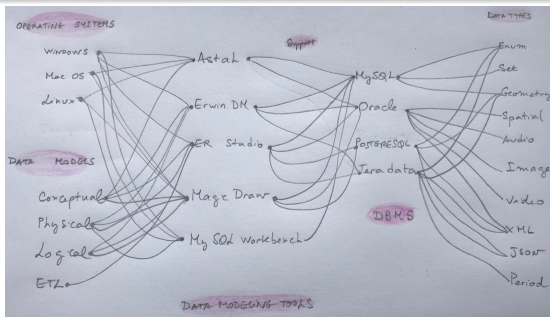 OPERATING SYSTEMS
WINDOWS
Mac OS
Linux
DATA MODELS
Conceptual
Physical
Logical
ETL
Astah
Erwin DM
ER Studio
Magic Draw
My SQL Workbench
DATA MODELING TOOLS
Support
MySQL
Oracle
POSTGRESQL
Teradata
DBMS
DATA TYPES
Enum
Set
Geometry
Spatial
Audio
Image
Video
XML
JSON
Period